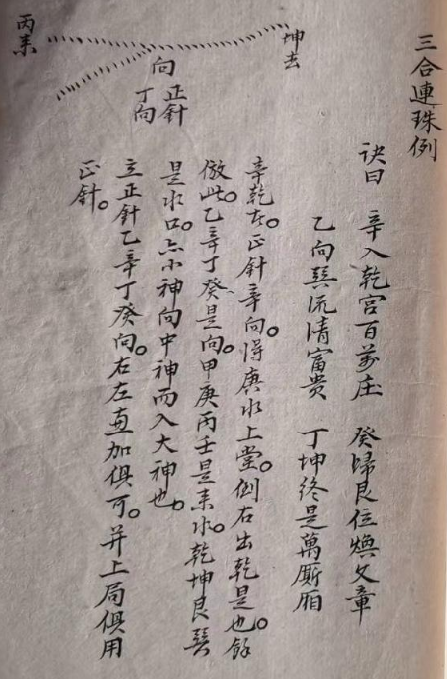 三合連珠例
訣曰 辛入乾宮百萬庄 癸歸艮位煥文章
乙向巽流清富貴 丁坤終是萬厮廂
坤去
向 正針
丁向
丙來
辛乾在正針辛向。得庚水上堂。倒右出乾是也。餘
倣此。乙辛丁癸是向。甲庚丙壬是来水。乾坤艮巽
是水口。亦小神向中神而入大神也。
立正針乙辛丁癸向。右左直加俱可。并上局俱用
正針。